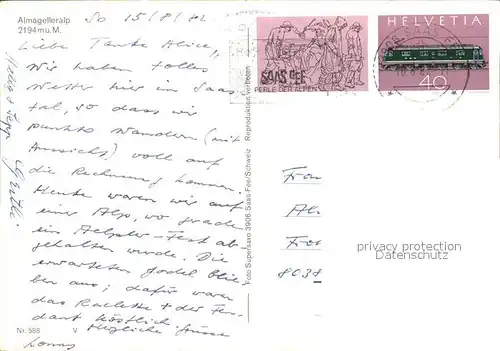 Almagelleralp
2194 m ü. M.
So 15/8/82
Liebe Tante Alice,
Wir haben tolles
Wetter hier im Saas-
tal, so dass wir
punkto Wandern (mit
Aussicht) voll auf
die Rechnung kommen.
Heute waren wir auf
einer Alp, wo grade
ein Aelpler-Fest ab-
gehalten wurde. Die
erwarteten Jodel blie-
ben aus; dafür waren
das Raclette + der Fen-
dant köstlich
Herzliche Grüsse
Nr. 588 V
Foto Supersaxo 3906 Saas-Fee/Schweiz Reproduktion verboten
SAAS FEE
PERLE DER ALPEN
HELVETIA
40
Frau
Al
8038
privacy protection
Veldemanns